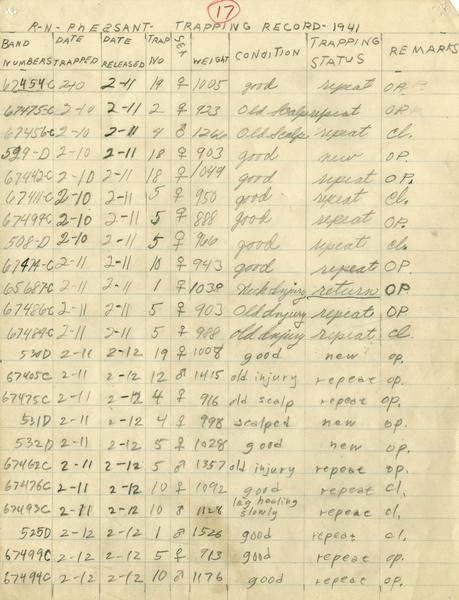 17
R-N- PHEASANT- TRAPPING RECORD- 1941
BAND NUMBERS DATE TRAPPED DATE RELEASED TRAP NO SEX WEIGHT CONDITION TRAPPING STATUS REMARKS
67454-C 2-10 2-11 19 ♀ 1005 good repeat OP.
67475-C 2-10 2-11 2 ♀ 923 Old Scalp repeat OP.
67456-C 2-10 2-11 4 ♂ 1266 Old Scalp repeat cl.
529-D 2-10 2-11 18 ♀ 903 good new OP.
67442-C 2-10 2-11 18 ♀ 1049 good repeat OP.
67411-C 2-10 2-11 5 ♀ 950 good repeat cl.
67499-C 2-10 2-11 5 ♀ 888 good repeat OP.
508-D 2-10 2-11 5 ♀ 966 good repeat cl.
67474-C 2-11 2-11 10 ♀ 943 good repeat OP.
65687C 2-11 2-11 1 ♀ 1038 Neck Injury return OP
67486C 2-11 2-11 5 ♀ 903 Old Injury repeat OP
67489C 2-11 2-11 5 ♀ 988 Old Injury repeat cl.
530D 2-11 2-12 19 ♀ 1008 good new op.
67405C 2-11 2-12 12 ♂ 1415 old injury repeat op.
67475C 2-11 2-12 4 ♀ 916 old scalp repeat op.
531D 2-11 2-12 4 ♀ 998 scalped new op.
532D 2-11 2-12 5 ♀ 1028 good new op.
67462C 2-11 2-12 5 ♂ 1357 old injury repeat op.
67476C 2-11 2-12 10 ♀ 1092 good repeat cl.
67493C 2-11 2-12 10 ♂ 1128 leg healing slowly repeat cl.
525D 2-12 2-12 1 ♂ 1526 good repeat cl.
67499C 2-12 2-12 5 ♀ 913 good repeat op.
67494C 2-12 2-12 10 ♂ 1176 good repeat op.